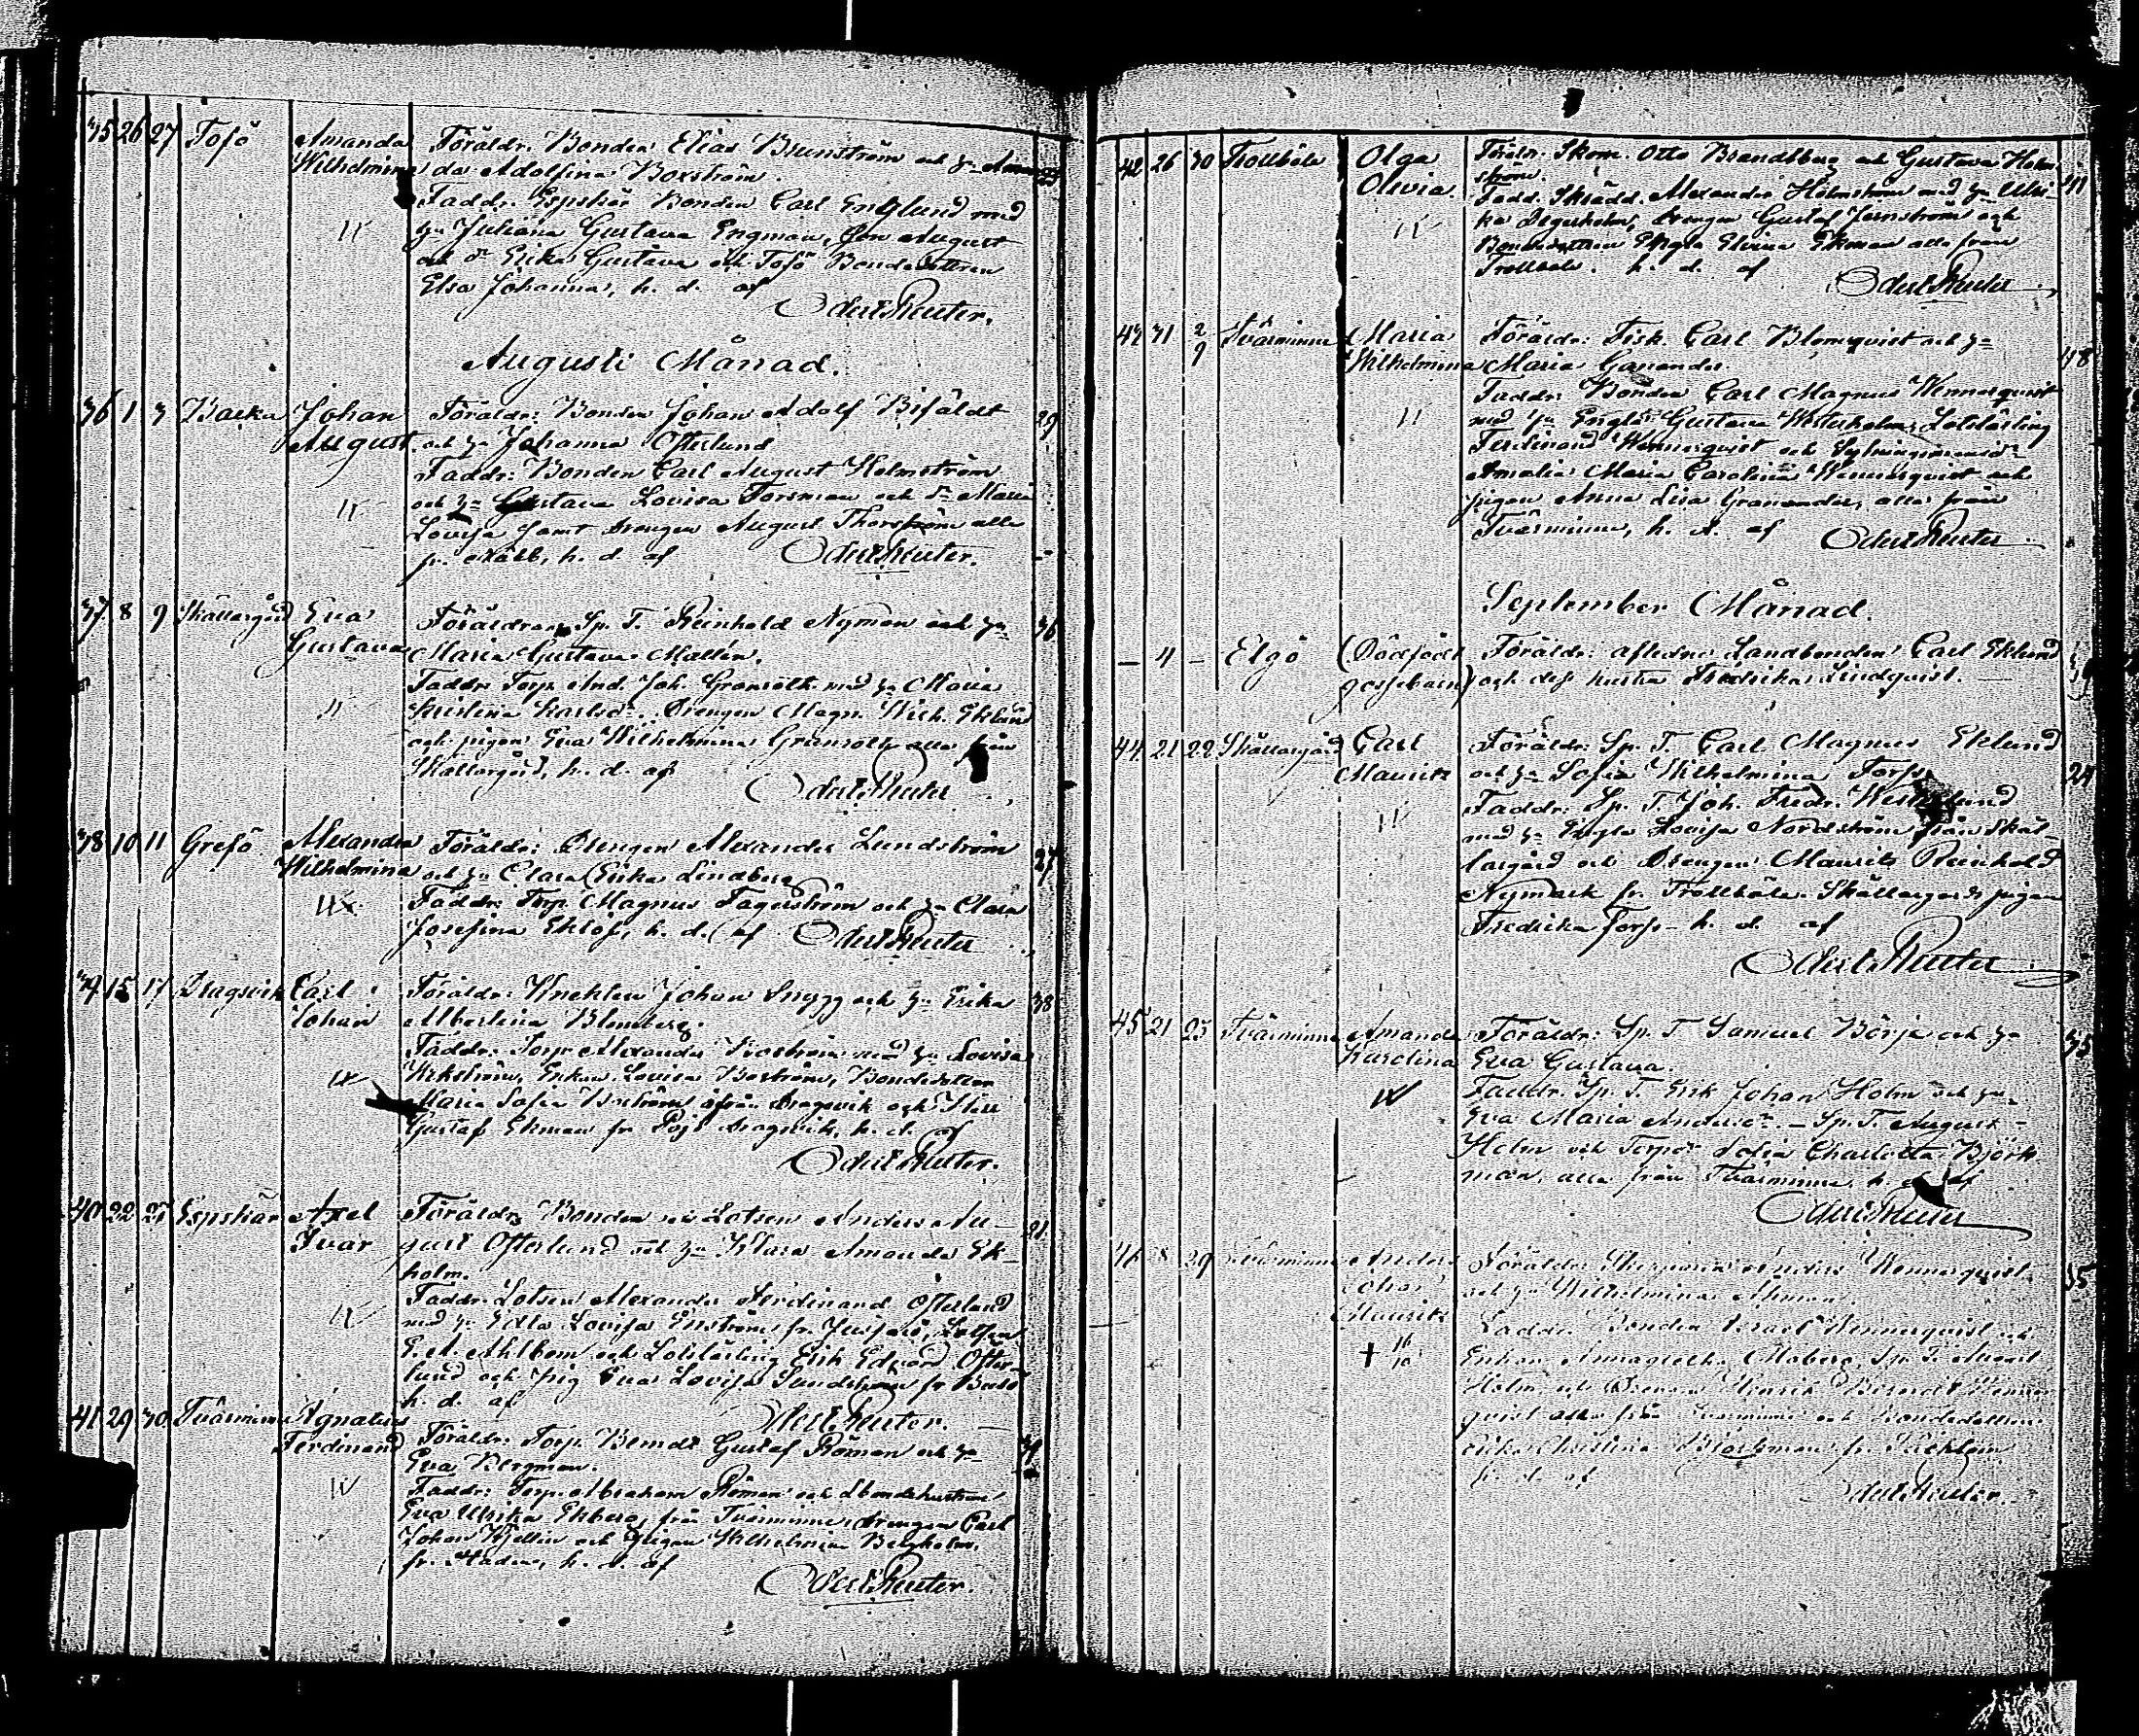 35 26 27 Tofö Amanda Föräldr. Bonden Elias Brunström och h:u Aman 23
Wilhelmina da Adolfina Boxström.
Faddr. Espskär Bonden Carl Englund med
h:u Juliana Gustava Engman, Son August
och d:r Erika Gustava och Tofö Bondedottren
Elsa Johanna, h. d. af
Odert Reuter.
Augusti Månad.
36 1 3 Backa Johan Föräldr: Bonden Johan Adolf Bifäldt 29
August. och h:u Johanna Österlund
Faddr: Bonden Carl August Holmström
och h:u Gustava Lovisa Forsman och d:r Maria
Lovisa samt Drengen August Thorström alla
h. d. af Odert Reuter.
37 8 9 Skållargård Eva Föräldrar Sp. T. Reinhold Nyman och h:u 36
Gustava Maria Gustava Mallén.
Faddr. Torp. And. Joh. Granroth med h:u Maria
Kristina Karlsd:r. Drengen Magn. Wilh. Eklund
och pigan Eva Wilhelmina Granroth alla från
Skållargård, h. d. af
Odert Reuter
38 10 11 Grefö Alexandra Föräldr: Drengen Alexander Lundström 27
Wilhelmina och h:u Clara Erika Lindberg
Faddr: Torp. Magnus Fagerström och h:u Clara
Josefina Eklöf, h. d. af Odert Reuter
39 15 17 Dragsvik Carl Föräldr: Knekten Johan Snygg och h:u Erika 38
Johan Albertina Blomberg.
Faddr. Torp. Alexander Boström med h:u Lovisa
Wikström, Enkan Lovisa Boström, Bondedottren
Maria Sofia från Dragsvik och
Gustaf Ekman fr Pojo Dragsvik, h. d. af
Odert Reuter.
40 22 25 Espskär Axel Föräldr. Bonden och Lotsen Anders Au- 21
Ivar gust Österlund och h:u Klara Amanda Ek-
holm.
Faddr. Lotsen Alexander Ferdinand Österlund
med h:u Edla Lovisa Enström fr. Jussarö, Lotsen
E. A. Ahlbom och Lotslärling Erik Edvard Öster-
lund och pig Eva Lovisa Sundström fr Busö
h. d. af Odert Reuter.
41 29 30 Tvärminne Agnatus Föräldr: Torp. Berndt Gustaf Röman och h:u
Ferdinand Eva Bergman.
Faddr: Torp. Abraham Röman och
Eva Ulrika Ekberg från Tvärminne, drengen Carl
Johan Kjellin och pigan Wilhelmina Bergholm,
fr. Staden, h. d. af
Odert Reuter.
42 26 30 Trollböle Olga Föräldr. Skom. Otto Brandtberg och Gustava Holm 41
Olivia ström.
Fadd. Skrädd. Alexander Holmström med h:u Ulri-
ka Degerholm, Drengen Gustaf Jernström och
Bondedottren Engla Elvira Ekman alla från
Trollböle. h. d. af Odert Reuter
43 31 2/9 Tvärminne Maria Föräldr: Fisk. Carl Blomqvist och h:u 48
Wilhelmina Maria Ganander.
Faddr: Bonden Carl Magnus Wennerqvist
med h:u Engla Gustava Westerholm, Lotslärling
Ferdinand Wennerqvist och
Amalia Maria Carolina Wennerqvist och
pigan Anna Lisa Granander, alla från
Tvärminne, h. d. af Odert Reuter
September Månad.
— 4 — Elgö (Dödfödt Föräldr: aflidne Landbonden Carl Eklund
gossebarn) och dess hustru Fredrika Lindqvist.
44 21 22 Skållargård Carl Föräldr: Sp. T. Carl Magnus Eklund 24
Maurits och h:u Sofia Wilhelmina Forss.
Faddr: Sp. T. Joh. Fredr. Westerlund
med h:u Engla Lovisa Nordström från Skål-
largård och Drengen Maurits Reinhold
Nymark fr. Trollböle. Skållargårds pigan
Fredrika Forss - h. d. af
Odert Reuter
45 21 25 Tvärminne Amanda Föräldr: Sp. T Samuel Börje och h:u 35
Karolina Eva Gustava.
Faddr. Sp. T. Erik Johan Holm och h:u
Eva Maria Andersd:r — Sp. T. August
Holm och Torpd:r Sofia Charlotta Björk-
man, alla från Tvärminne, h. d. af
Odert Reuter
46 29 Tvärminne Anders Föräldr: Anders Wennerqvist 35
Johan och h:u Wilhelmina Åhman.
Maurits Faddr. Bonden Israel Wennerqvist och
† 16/10 Enkan Annagreta Moberg, Sp. T. August
Holm och Drengen Henrik Berndt Wenner-
qvist alla från Tvärminne och Bondedottren
Erika Christina Björkman fr. Täcktom
h. d. af
Odert Reuter.